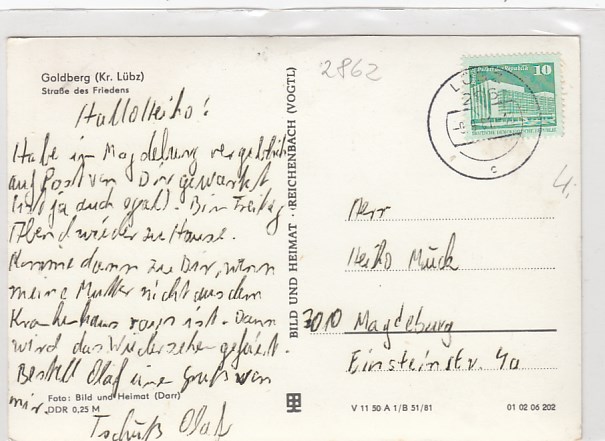 Goldberg (Kr. Lübz)
Straße des Friedens
2862
10
Hallo Heiko!
Habe in Magdeburg vergeblich
auf Post von Dir gewartet
ist ja auch egal. Bin Freitag
Abend wieder zu Hause.
Komme dann zu Dir, wenn
meine Mutter nicht aus dem
Krankenhaus raus ist. Dann
wird das Wiedersehen gefeiert.
Bestell Olaf eine Gruß von
mir.
Tschüß Olaf
Foto: Bild und Heimat (Darr)
DDR 0,25 M
BILD UND HEIMAT · (REICHENBACH (VOGTL)
Herr
Heiko Mück
3010 Magdeburg
Einsteinstr. 9a
V 11 50 A 1/B 51/81
01 02 06 202
4.